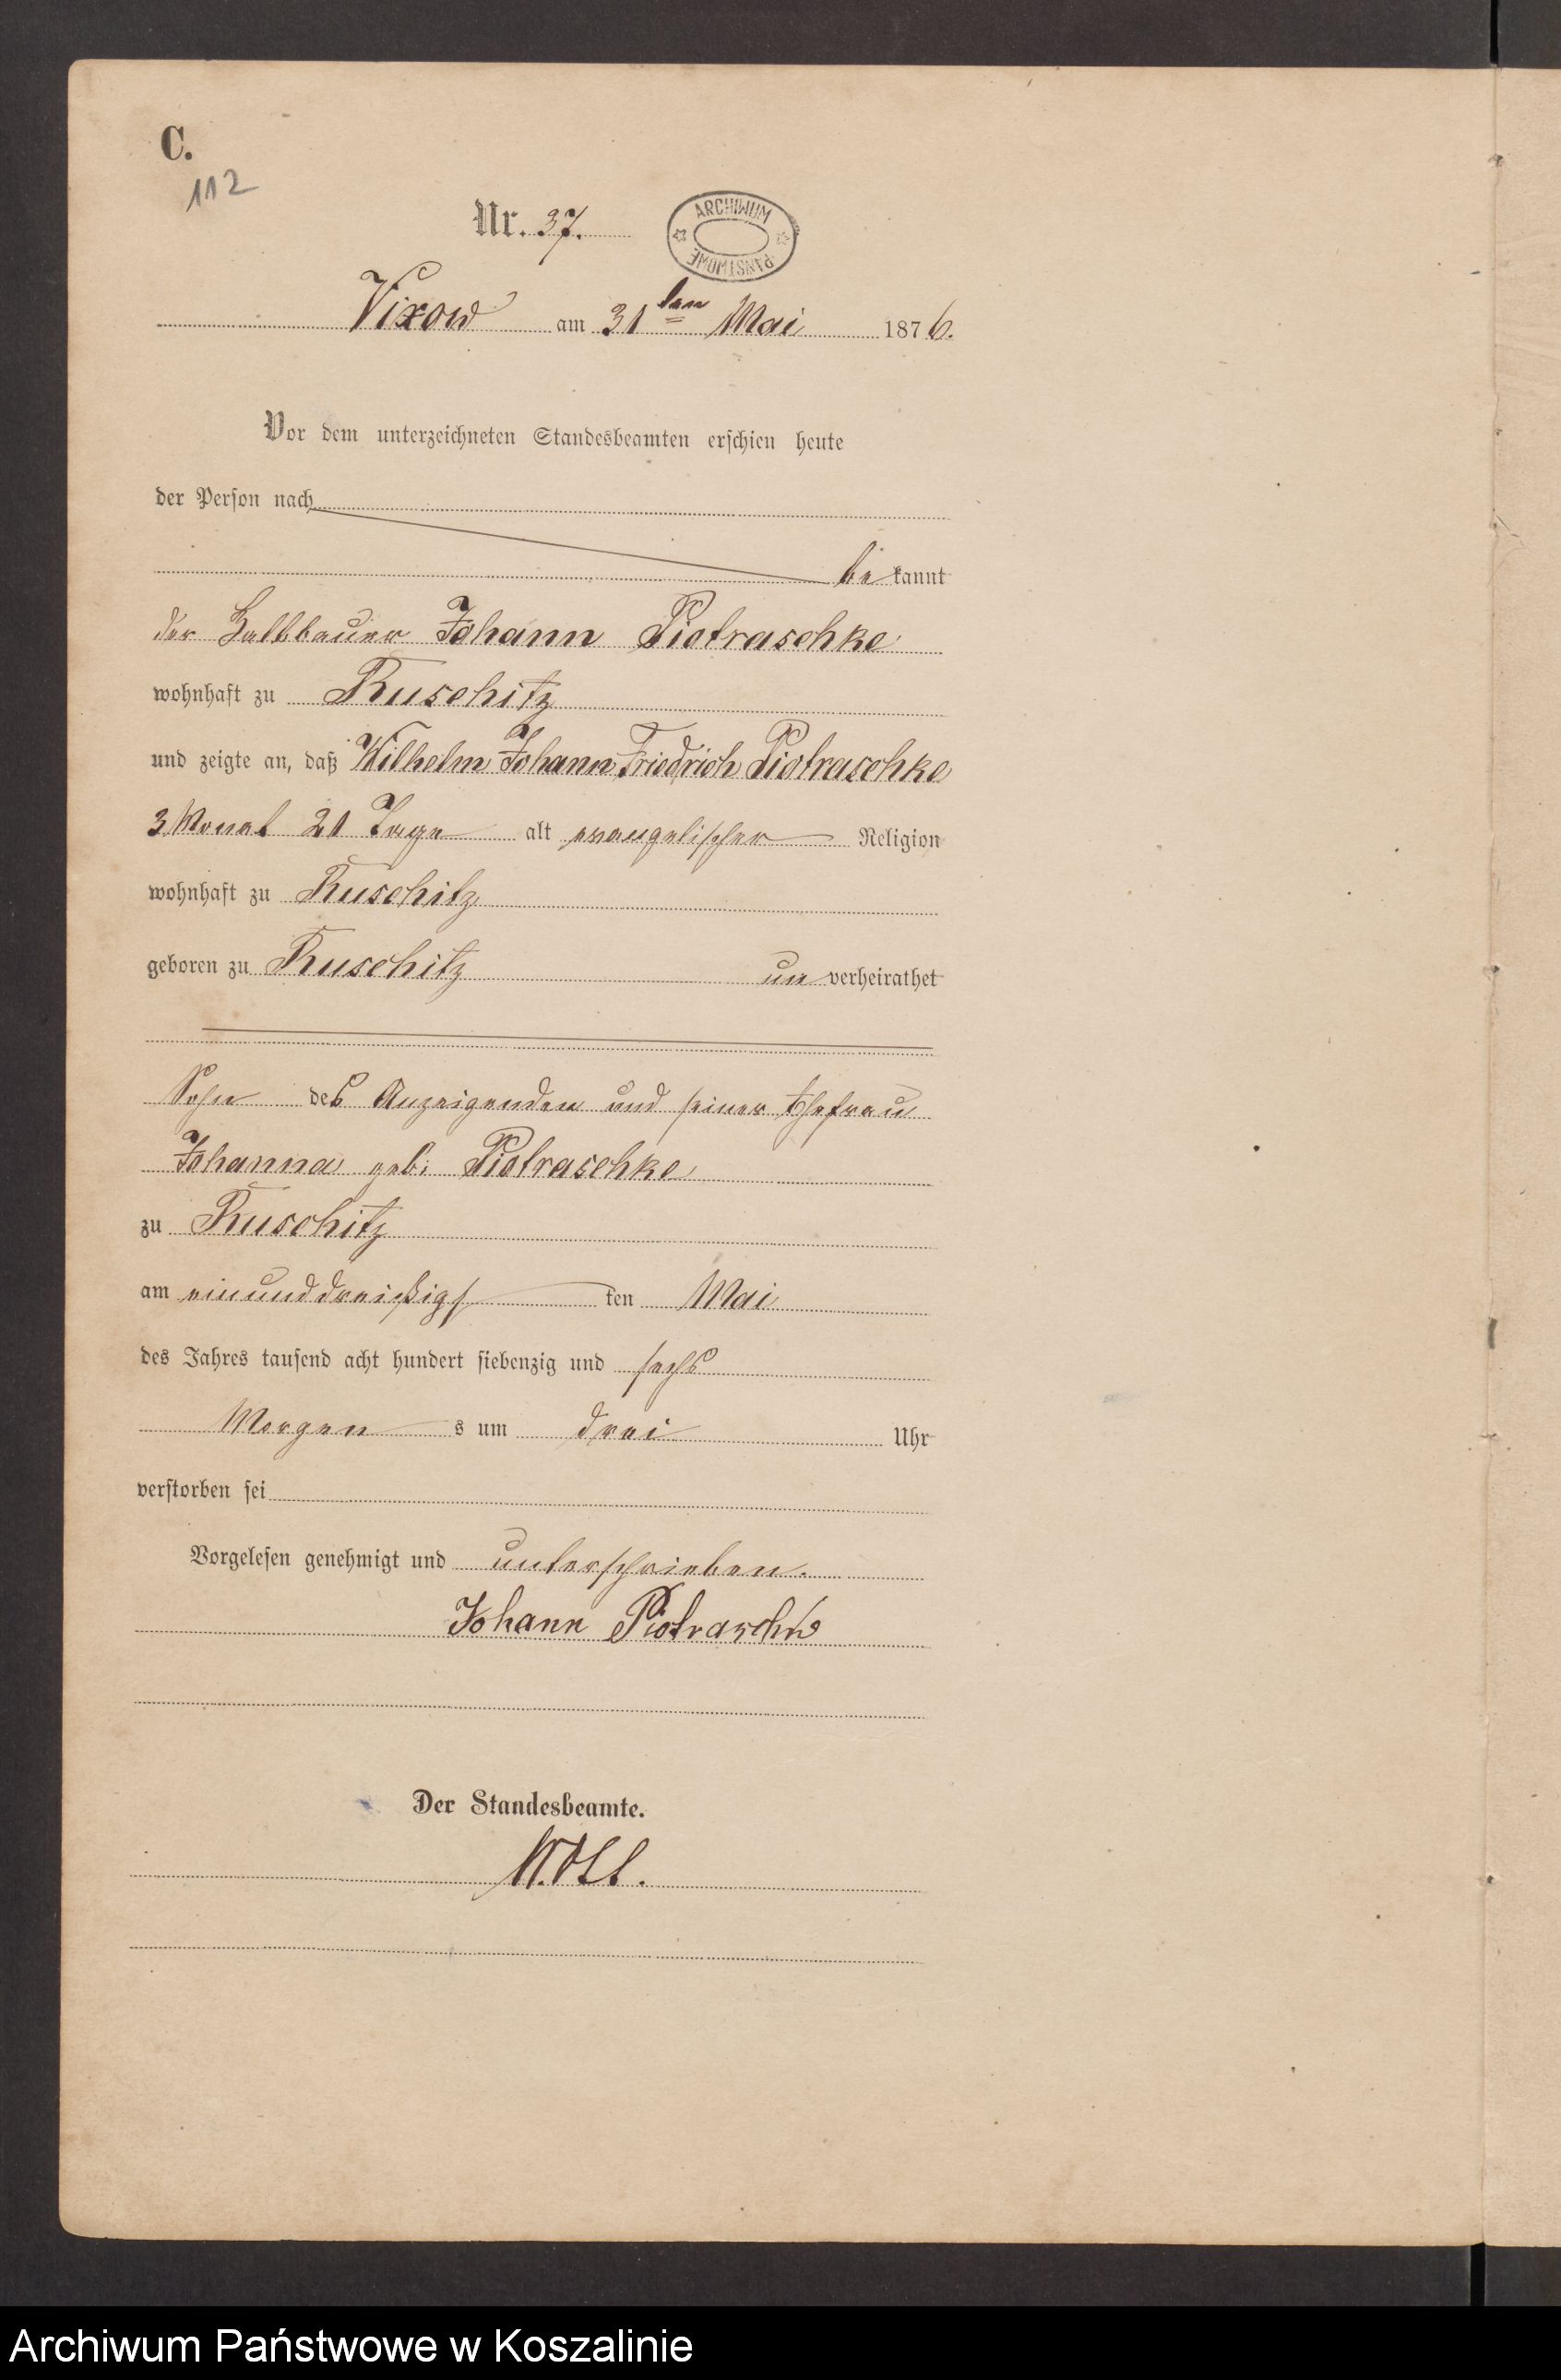 C.
112
Nr. 37.
ARCHIWUM PAŃSTWOWE
Vixow am 31ten Mai 1876.
Vor dem unterzeichneten Standesbeamten erschien heute
der Person nach
be kannt
der Halbbauer Johann Piotraschke
wohnhaft zu Ruschitz
und zeigte an, daß Wilhelm Johann Friedrich Piotraschke
3 Monat 21 Tage alt evangelischer Religion
wohnhaft zu Ruschitz
geboren zu Ruschitz un verheirathet
Sohn des Anzeigenden und seiner Ehefrau
Johanna geb: Piotraschke
zu Ruschitz
am einunddreißigs ten Mai
des Jahres tausend acht hundert siebenzig und sechs
Morgen s um drei Uhr
verstorben sei
Vorgelesen genehmigt und unterschrieben.
Johann Piotraschke
Der Standesbeamte.
Archiwum Państwowe w Koszalinie